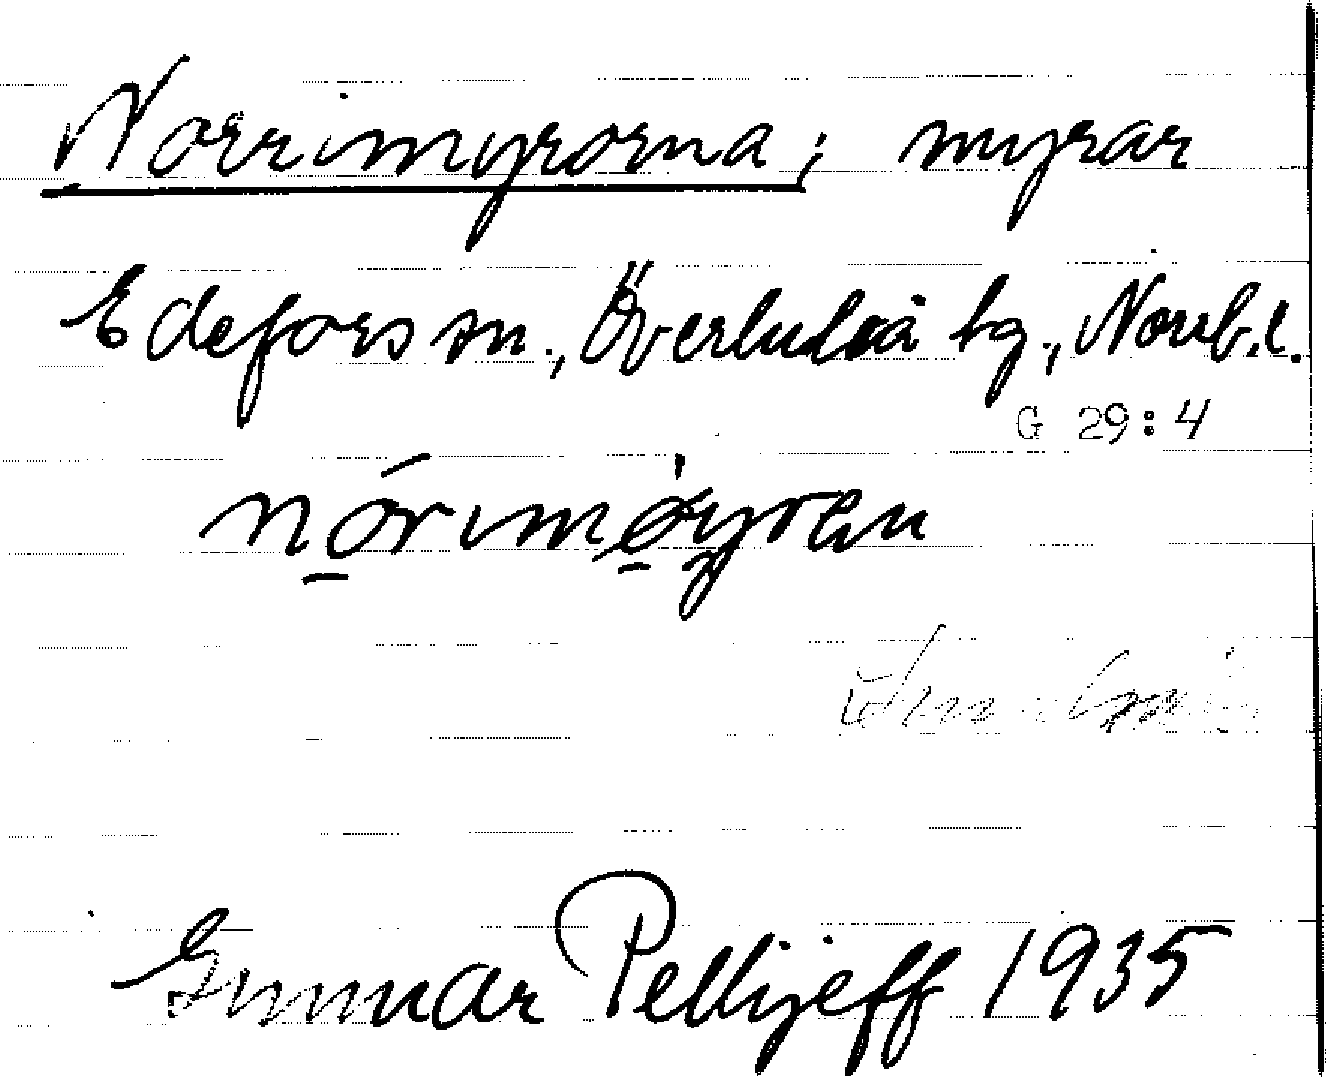 Norrimyrorna; myrar
Edefors sn., Överluleå tg., Norrb.l.
G 29:4
Gunnar Pellijeff 1935